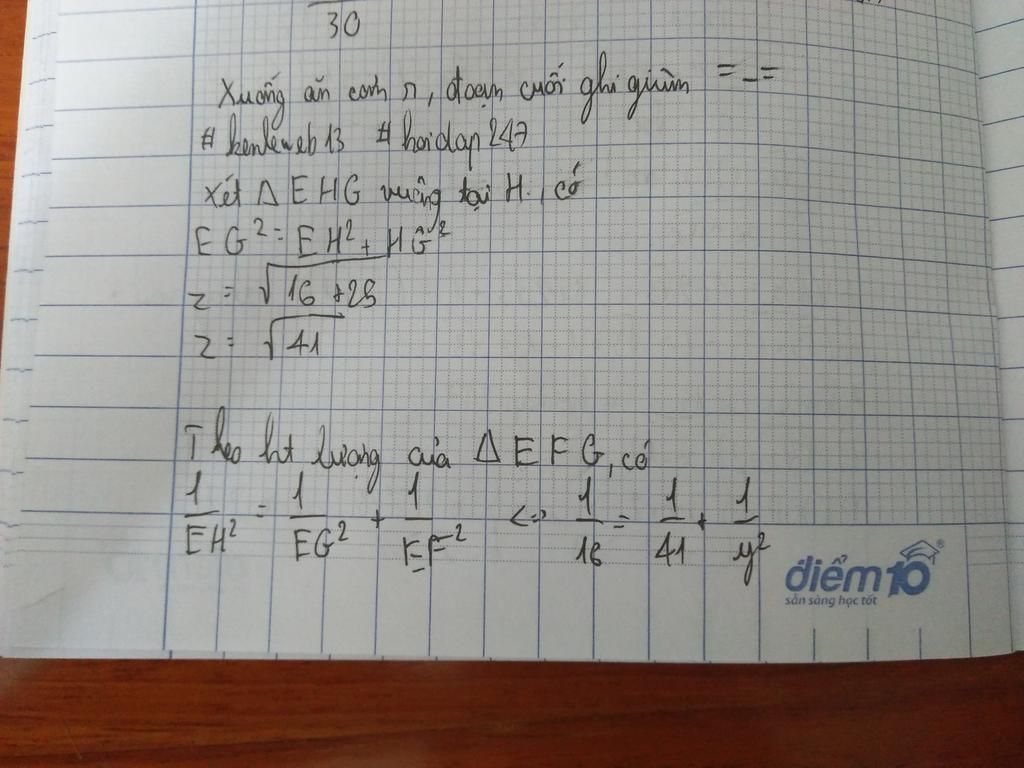 30
Xuống ăn cơm r, đoạn cuối ghi giùm =_=
# kenleweb13 # hoidap247
Xét Δ EHG vuông tại H, có
EG² = EH² + HG²
z = √16 + 25
z = √41
Theo ht lượng của Δ EFG, có
1/EH² = 1/EG² + 1/EF² <=> 1/16 = 1/41 + 1/y²
điểm10®
sẵn sàng học tốt